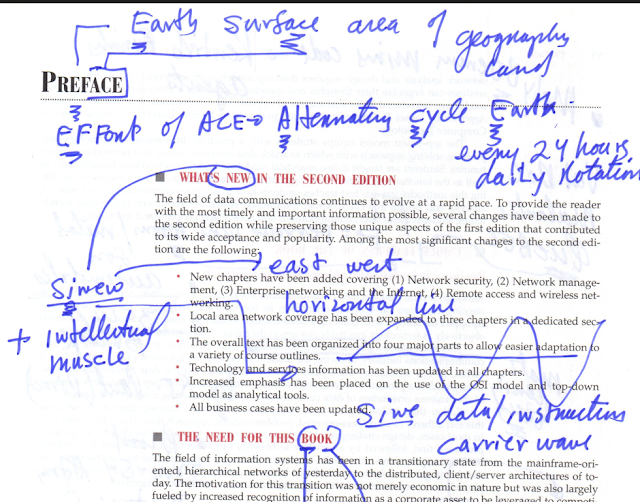 Earth surface area of geography
land
PREFACE
EFFont of ACE → Alternating Cycle Earth.
every 24 hours,
daily rotation
WHAT'S NEW IN THE SECOND EDITION
The field of data communications continues to evolve at a rapid pace. To provide the reader
with the most timely and important information possible, several changes have been made to
the second edition while preserving those unique aspects of the first edition that contributed
to its wide acceptance and popularity. Among the most significant changes to the second edi-
tion are the following:
east west
Sinew
+ intellectual
muscle
• New chapters have been added covering (1) Network security, (2) Network manage-
ment, (3) Enterprise networking and the Internet, (4) Remote access and wireless net-
working.
horizontal line
• Local area network coverage has been expanded to three chapters in a dedicated sec-
tion.
• The overall text has been organized into four major parts to allow easier adaptation to
a variety of course outlines.
• Technology and services information has been updated in all chapters.
• Increased emphasis has been placed on the use of the OSI model and top-down
model as analytical tools.
• All business cases have been updated.
Sine data/instructions
carrier wave
THE NEED FOR THIS BOOK
The field of information systems has been in a transitionary state from the mainframe-ori-
ented, hierarchical networks of yesterday to the distributed, client/server architectures of to-
day. The motivation for this transition was not merely economic in nature but was also largely
fueled by increased recognition of information as a corporate asset to be leveraged to competi-